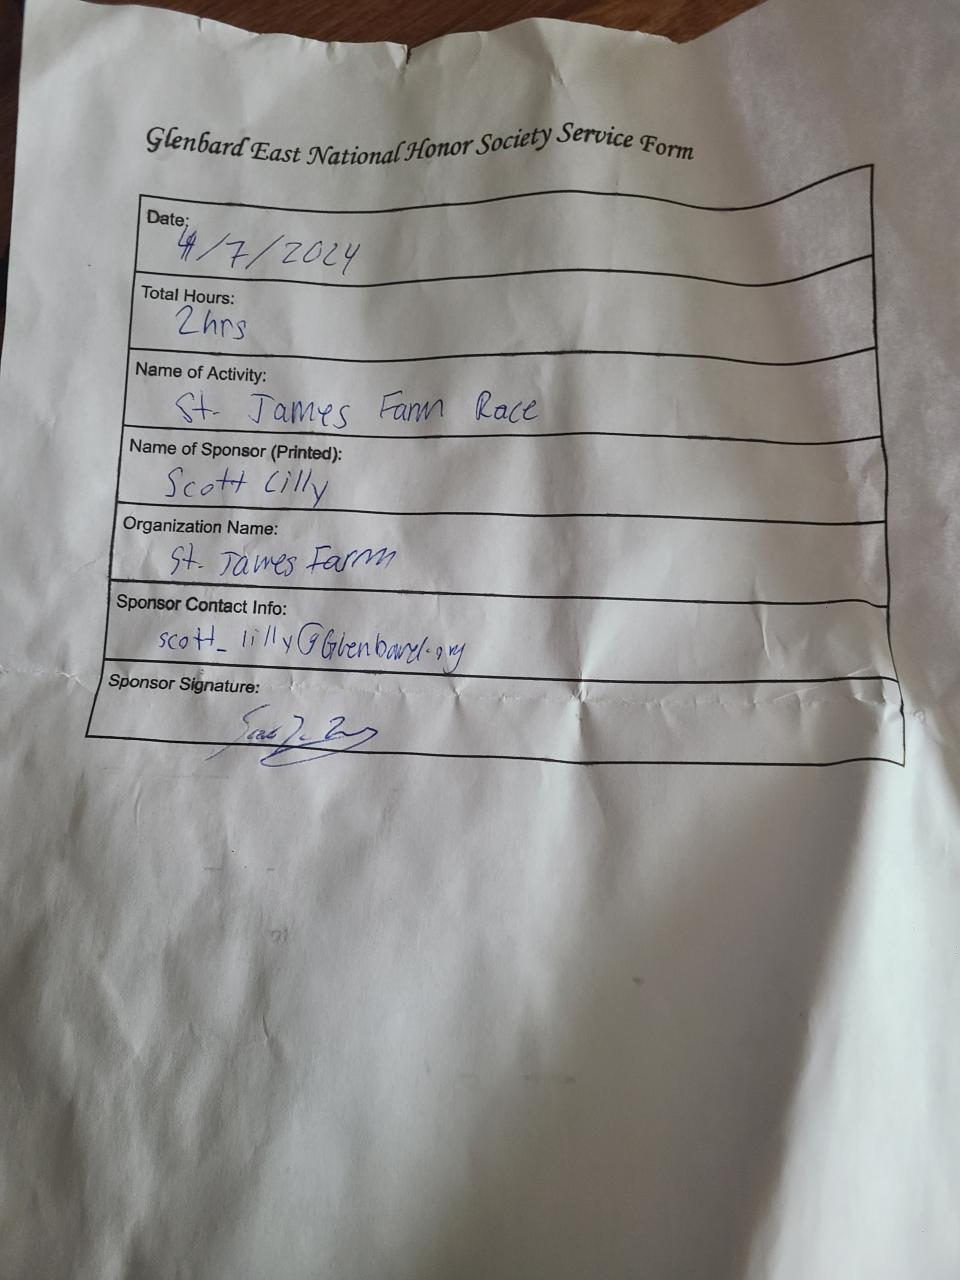 Glenbard East National Honor Society Service Form
Date:
4/7/2024
Total Hours:
2hrs
Name of Activity:
St. James Farm Race
Name of Sponsor (Printed):
Scott Lilly
Organization Name:
St. James Farm
Sponsor Contact Info:
scott_lilly@Glenbard.org
Sponsor Signature: